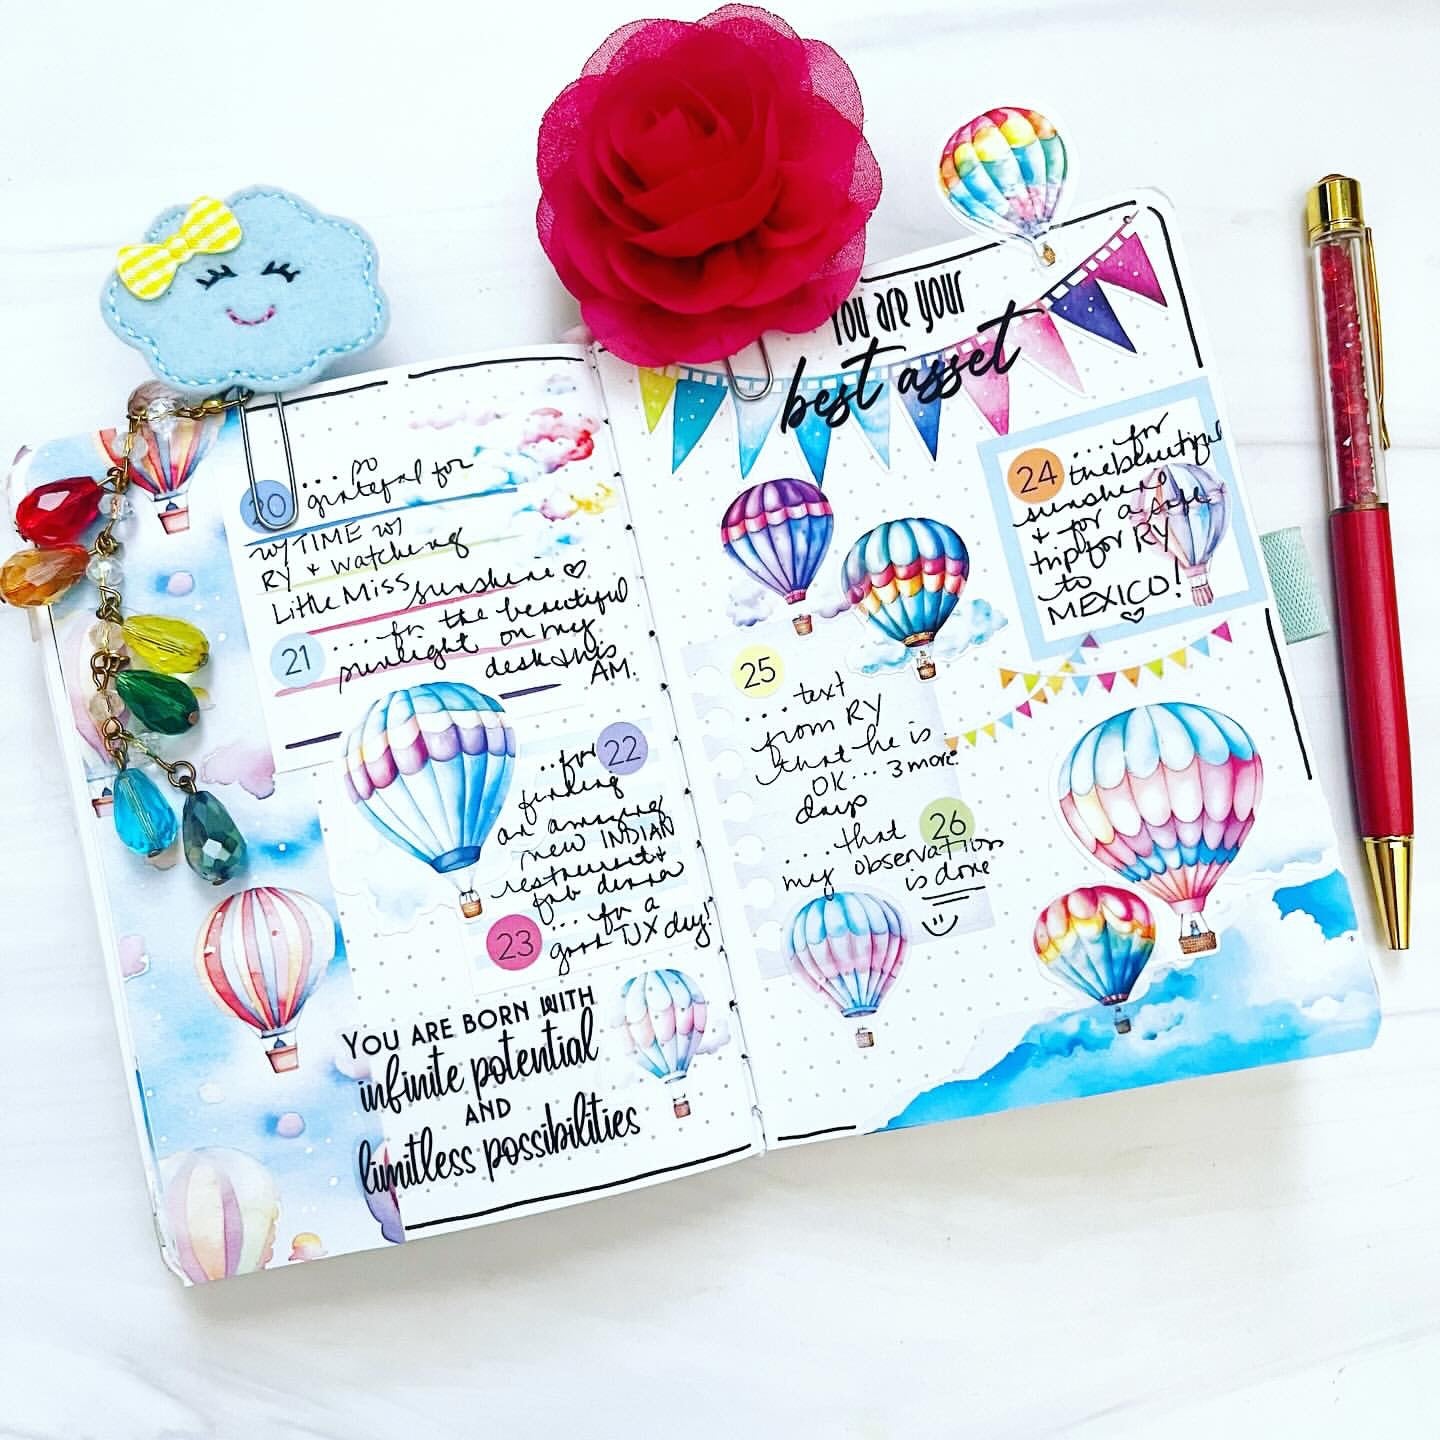 20 ...so
grateful for
w/ TIME w/
RY + watching
Little Miss Sunshine ♡
21 ...for the beautiful
sunlight on my
desk this
AM.
...for 22
finding
an amazing
new INDIAN
restaurant +
fab dinner
23 ...for a
good TJX day!
YOU ARE BORN WITH
infinite potential
AND
limitless possibilities
You are your
best asset
24 ...for
the beautiful
sunshine
& for a safe
trip for RY
to
MEXICO!
♡
25
...text
from RY
that he is
OK... 3 more
days
...that 26
my observation
is done